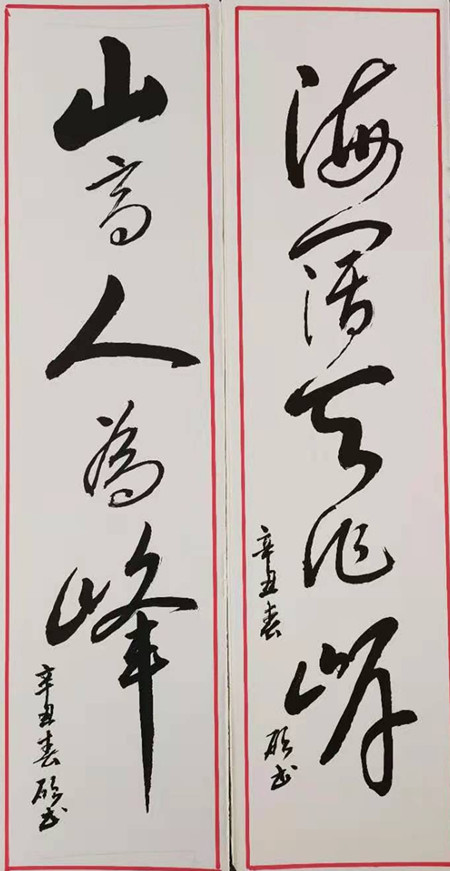 海闊天作岸
辛丑春
硕书
山高人為峰
辛丑春硕书